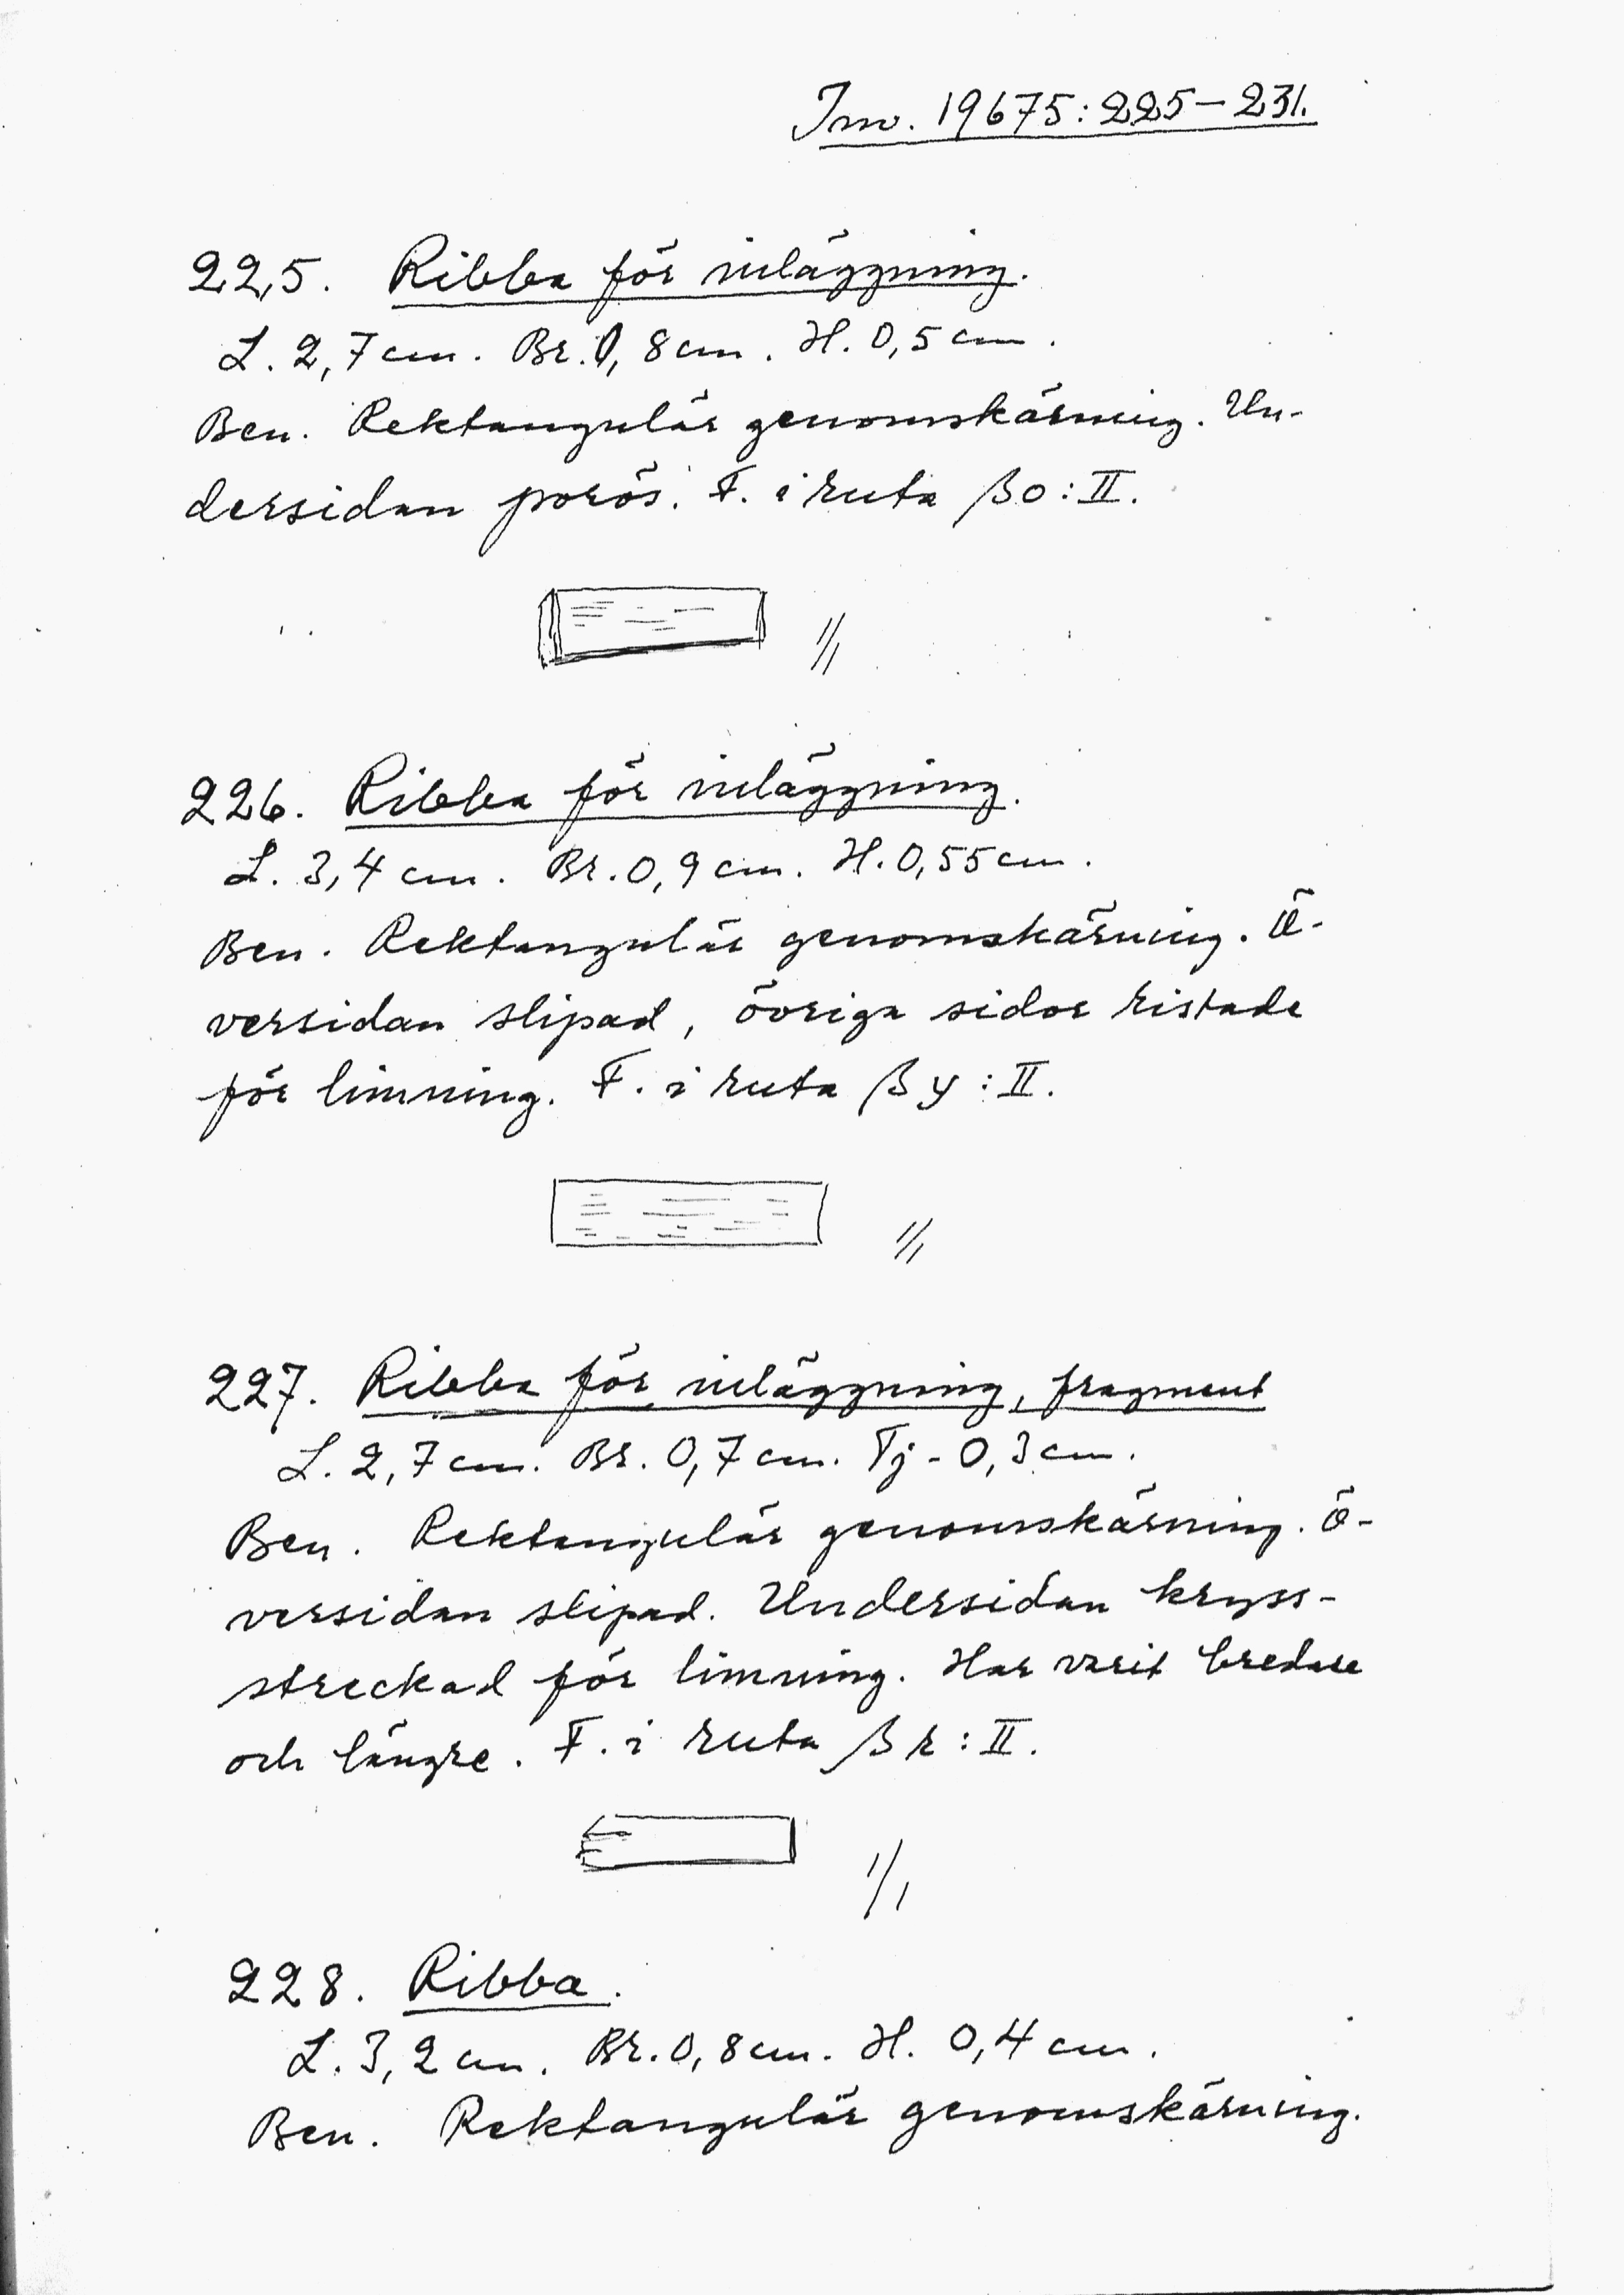 Inv. 19675:225-231.
225. Ribba för inläggning.
L. 2,7 cm. Br. 0,8 cm. H. 0,5 cm.
Ben. Rektangulär genomskärning. Un-
dersidan porös. F. i ruta βo:II.
1/1
226. Ribba för inläggning.
L. 3,4 cm. Br. 0,9 cm. H. 0,55 cm.
Ben. Rektangulär genomskärning. Ö-
versidan slipad, övriga sidor ristade
för limning. F. i ruta βy:II.
1/1
227. Ribba för inläggning, fragment
L. 2,7 cm. Br. 0,7 cm. Tj- 0,3 cm.
Ben. Rektangulär genomskärning. Ö-
versidan slipad. Undersidan kryss-
streckad för limning. Har varit bredare
och längre. F. i ruta βr:II.
1/1
228. Ribba.
L. 3,2 cm. Br. 0,8 cm. H. 0,4 cm.
Ben. Rektangulär genomskärning.